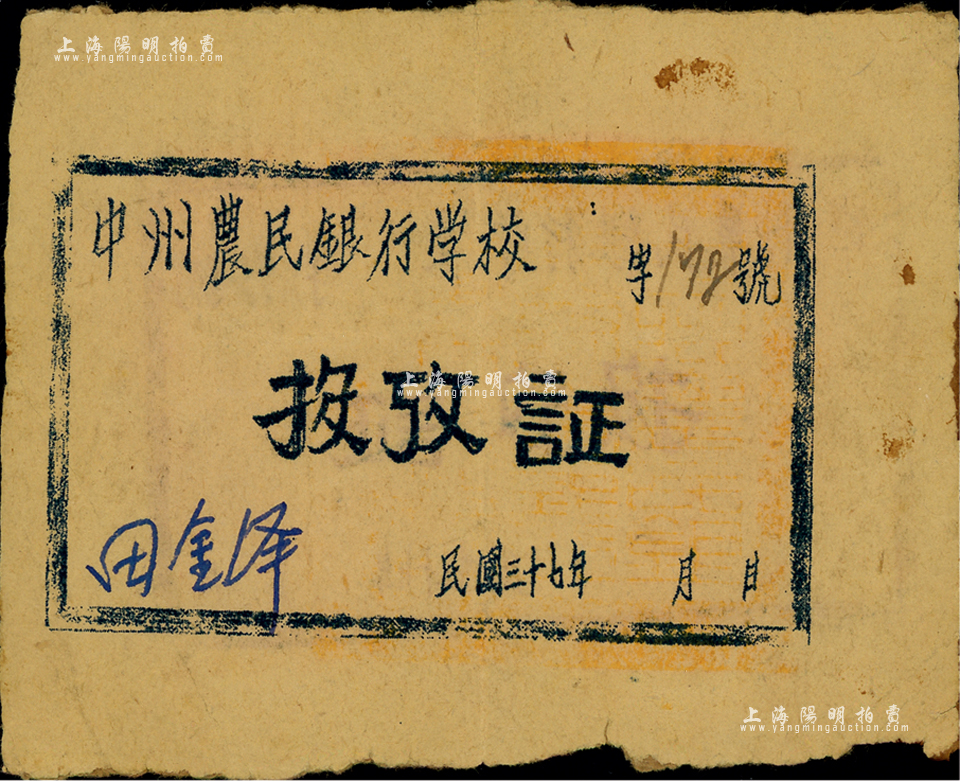 上海陽明拍賣
www.yangmingauction.com
中州農民銀行学校
字172號
投攷証
上海陽明拍賣
www.yangmingauction.com
田金泽
民國三十七年 月 日
上海陽明拍賣
www.yangmingauction.com